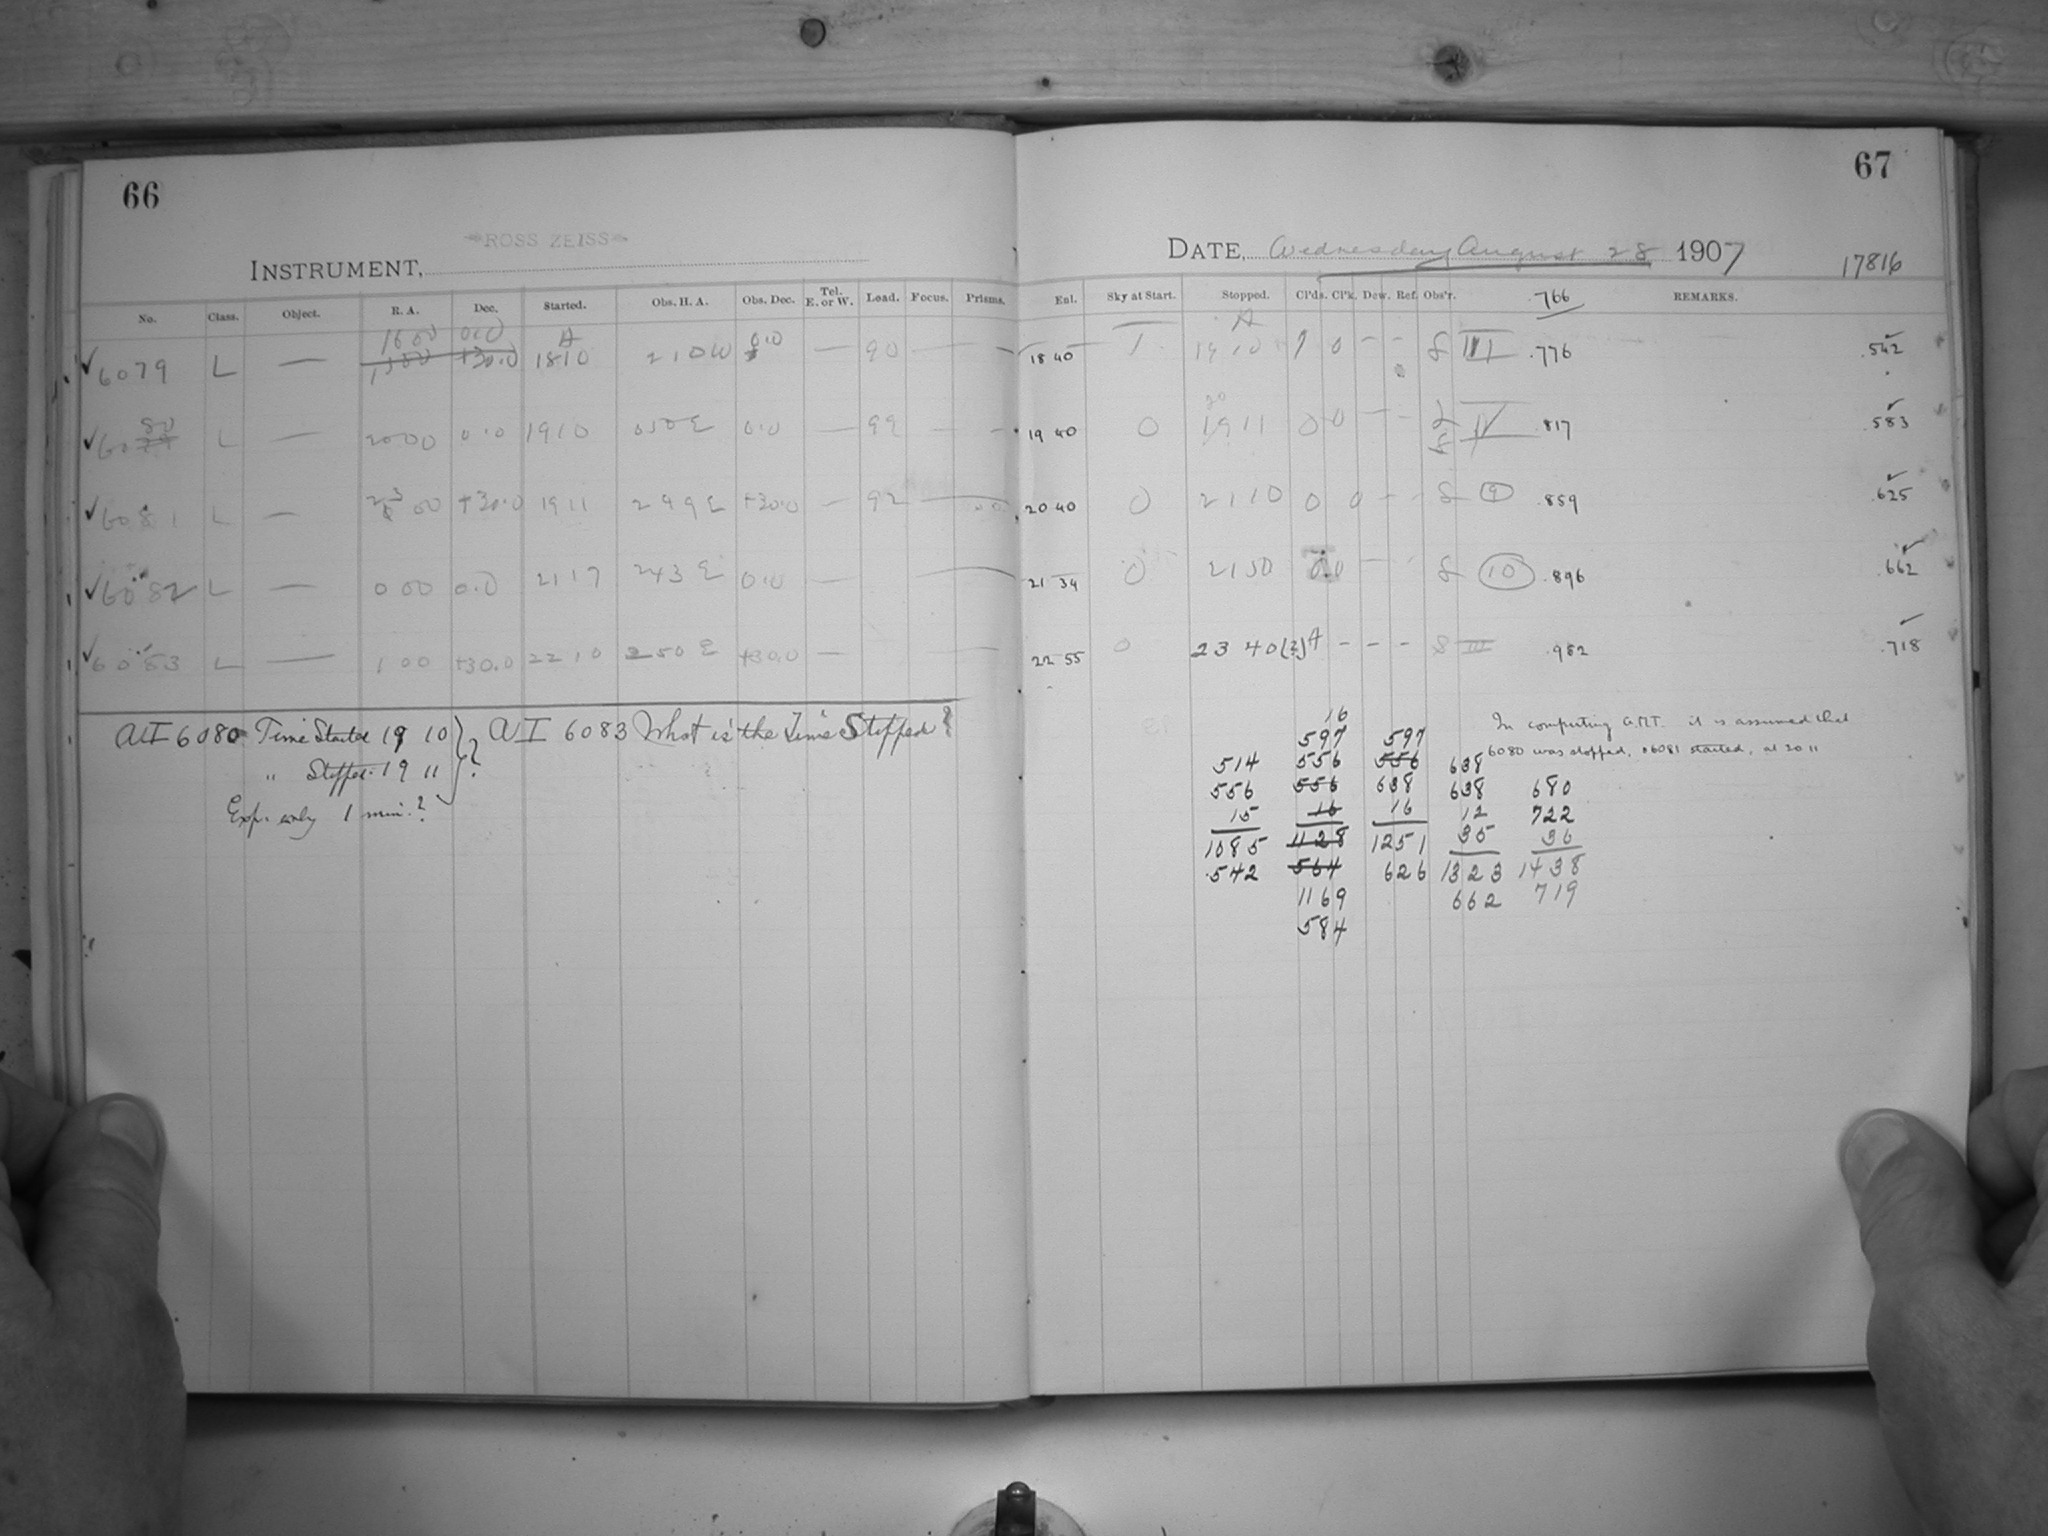 66
67
ROSS ZEISS
INSTRUMENT,
DATE, Wednesday August 28 1907
17816
No. Class. Object. R. A. Dec. Started. Obs. H. A. Obs. Dec. Tel. E. or W. Load. Focus. Prisms. Enl. Sky at Start. Stopped. Cl'ds. Cl'k. Dew. Ref. Obs'r. .766 REMARKS.
1600 00.0 A 0.0 A
✓6079 L — 1500 +30.0 1810 210W — 90 — — 18 40 1 1910 1 0 - - S III .776 .542
80 20
✓6079 L — 2000 0.0 1910 050E 0.0 — 92 — — 19 40 0 1911 0 0 - - S IV .817 .583
✓6081 L — 2300 +30.0 1911 299E +30.0 — 92 — 20 40 0 2110 0 0 - - S 9 .859 .625
✓6082 L — 000 0.0 2117 243E 0.0 — — 21 34 0 2150 0.0 - - S 10 .896 .662
✓6083 L — 100 +30.0 2210 250E +30.0 — — 22 55 0 23 40(?)A - - - S III .952 .718
AI 6080 Time Started 19 10 } ?
" Stopped 19 11
Exp. only 1 min.?
AI 6083 What is the Time Stopped?
In computing G.M.T. it is assumed that
6080 was stopped, & 6081 started, at 20 11
16
597 597
514 556 556 638
556 556 638 638 680
15 16 16 12 722
1085 1128 1251 35 36
.542 564 626 1323 1438
1169 662 719
584